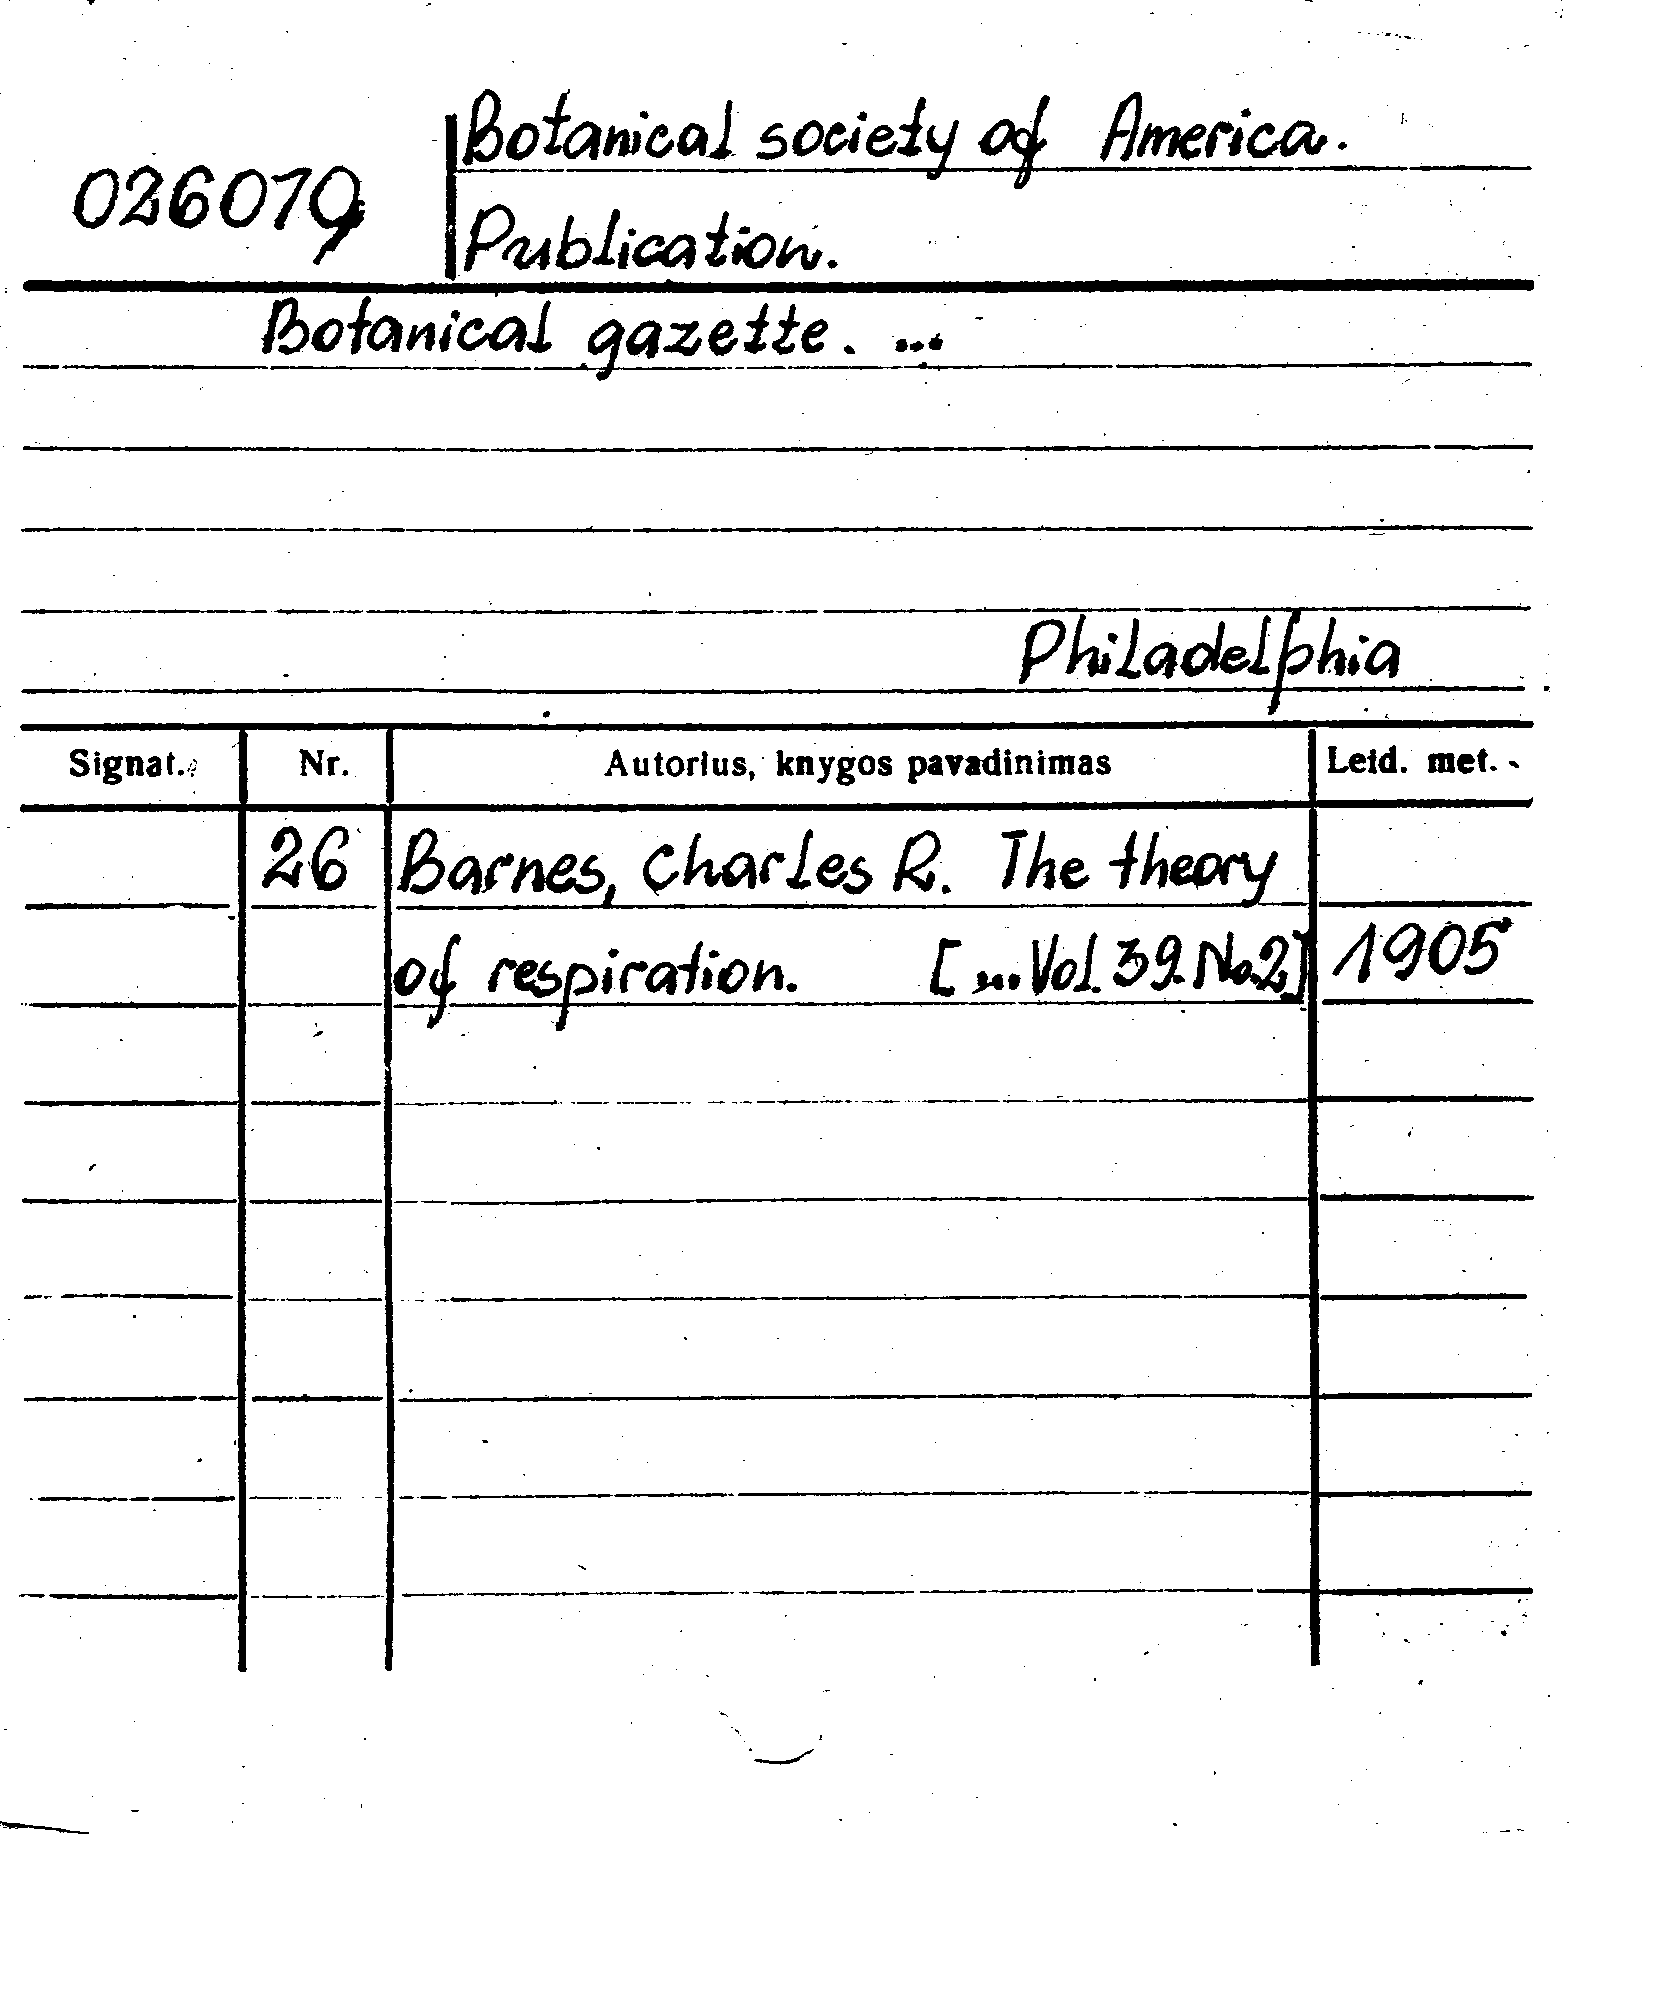 Botanical society of America.
026079
Publication.
Botanical gazette. ...
Philadelphia
Signat. Nr. Autorius, knygos pavadinimas Leid. met.
26 Barnes, Charles R. The theory
of respiration. [...Vol. 39. No.2] 1905